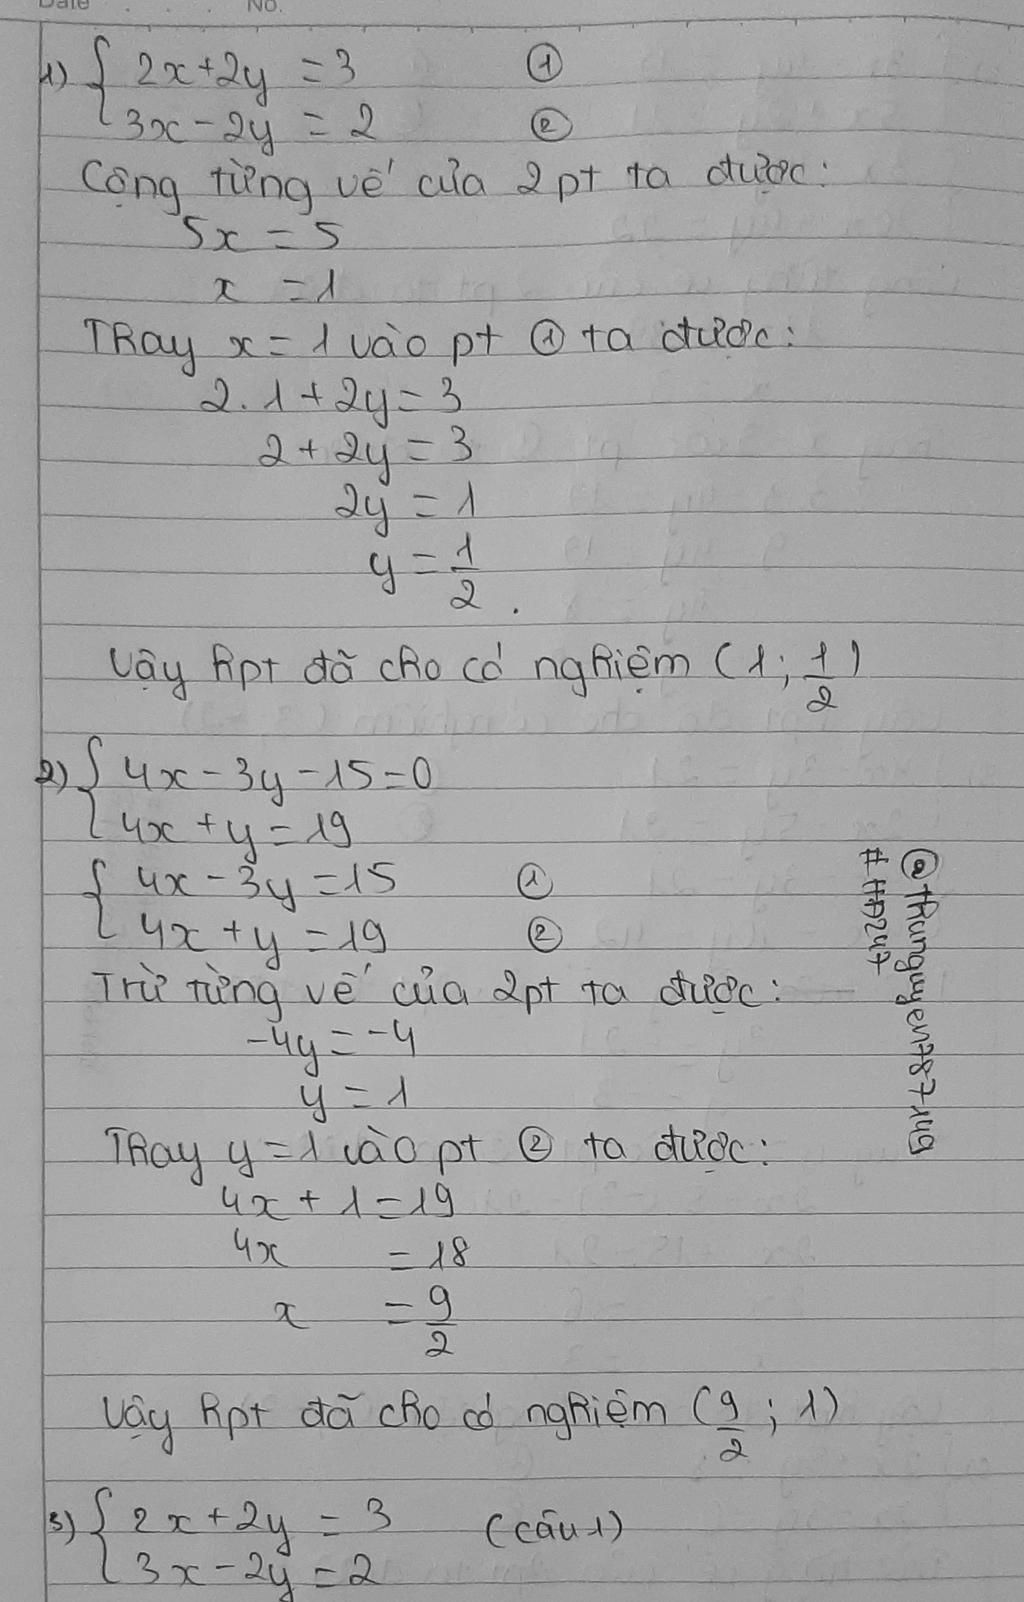 Date No.
1) { 2x + 2y = 3 ①
3x - 2y = 2 ②
Cộng từng vế của 2pt ta được:
5x = 5
x = 1
Thay x = 1 vào pt ① ta được:
2. 1 + 2y = 3
2 + 2y = 3
2y = 1
y = 1/2.
Vậy hpt đã cho có nghiệm (1; 1/2)
2) { 4x - 3y - 15 = 0
4x + y = 19
{ 4x - 3y = 15 ①
4x + y = 19 ②
Trừ từng vế của 2pt ta được:
-4y = -4
y = 1
Thay y = 1 vào pt ② ta được:
4x + 1 = 19
4x = 18
x = 9/2
Vậy hpt đã cho có nghiệm (9/2; 1)
3) { 2x + 2y = 3 (câu 1)
3x - 2y = 2
@thunguyen787149
#HD247